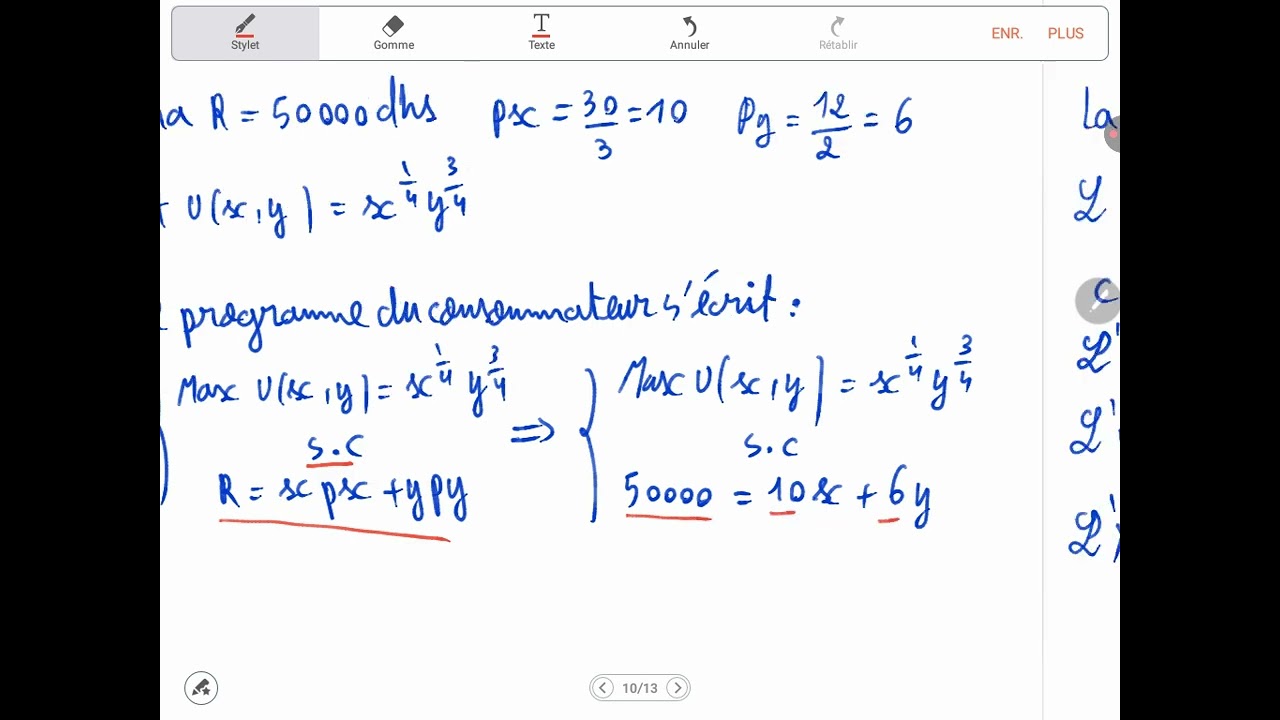 Stylet Gomme Texte Annuler Rétablir ENR. PLUS
a R = 50000 dhs px = 30/3 = 10 Py = 12/2 = 6 La
U(x,y) = x^{1/4} y^{3/4} L
programme du consommateur s'écrit : C
Max U(x,y) = x^{1/4} y^{3/4} ⇒ { Max U(x,y) = x^{1/4} y^{3/4} L'
s.c s.c L'
R = x px + y py 50000 = 10x + 6y L'
10/13